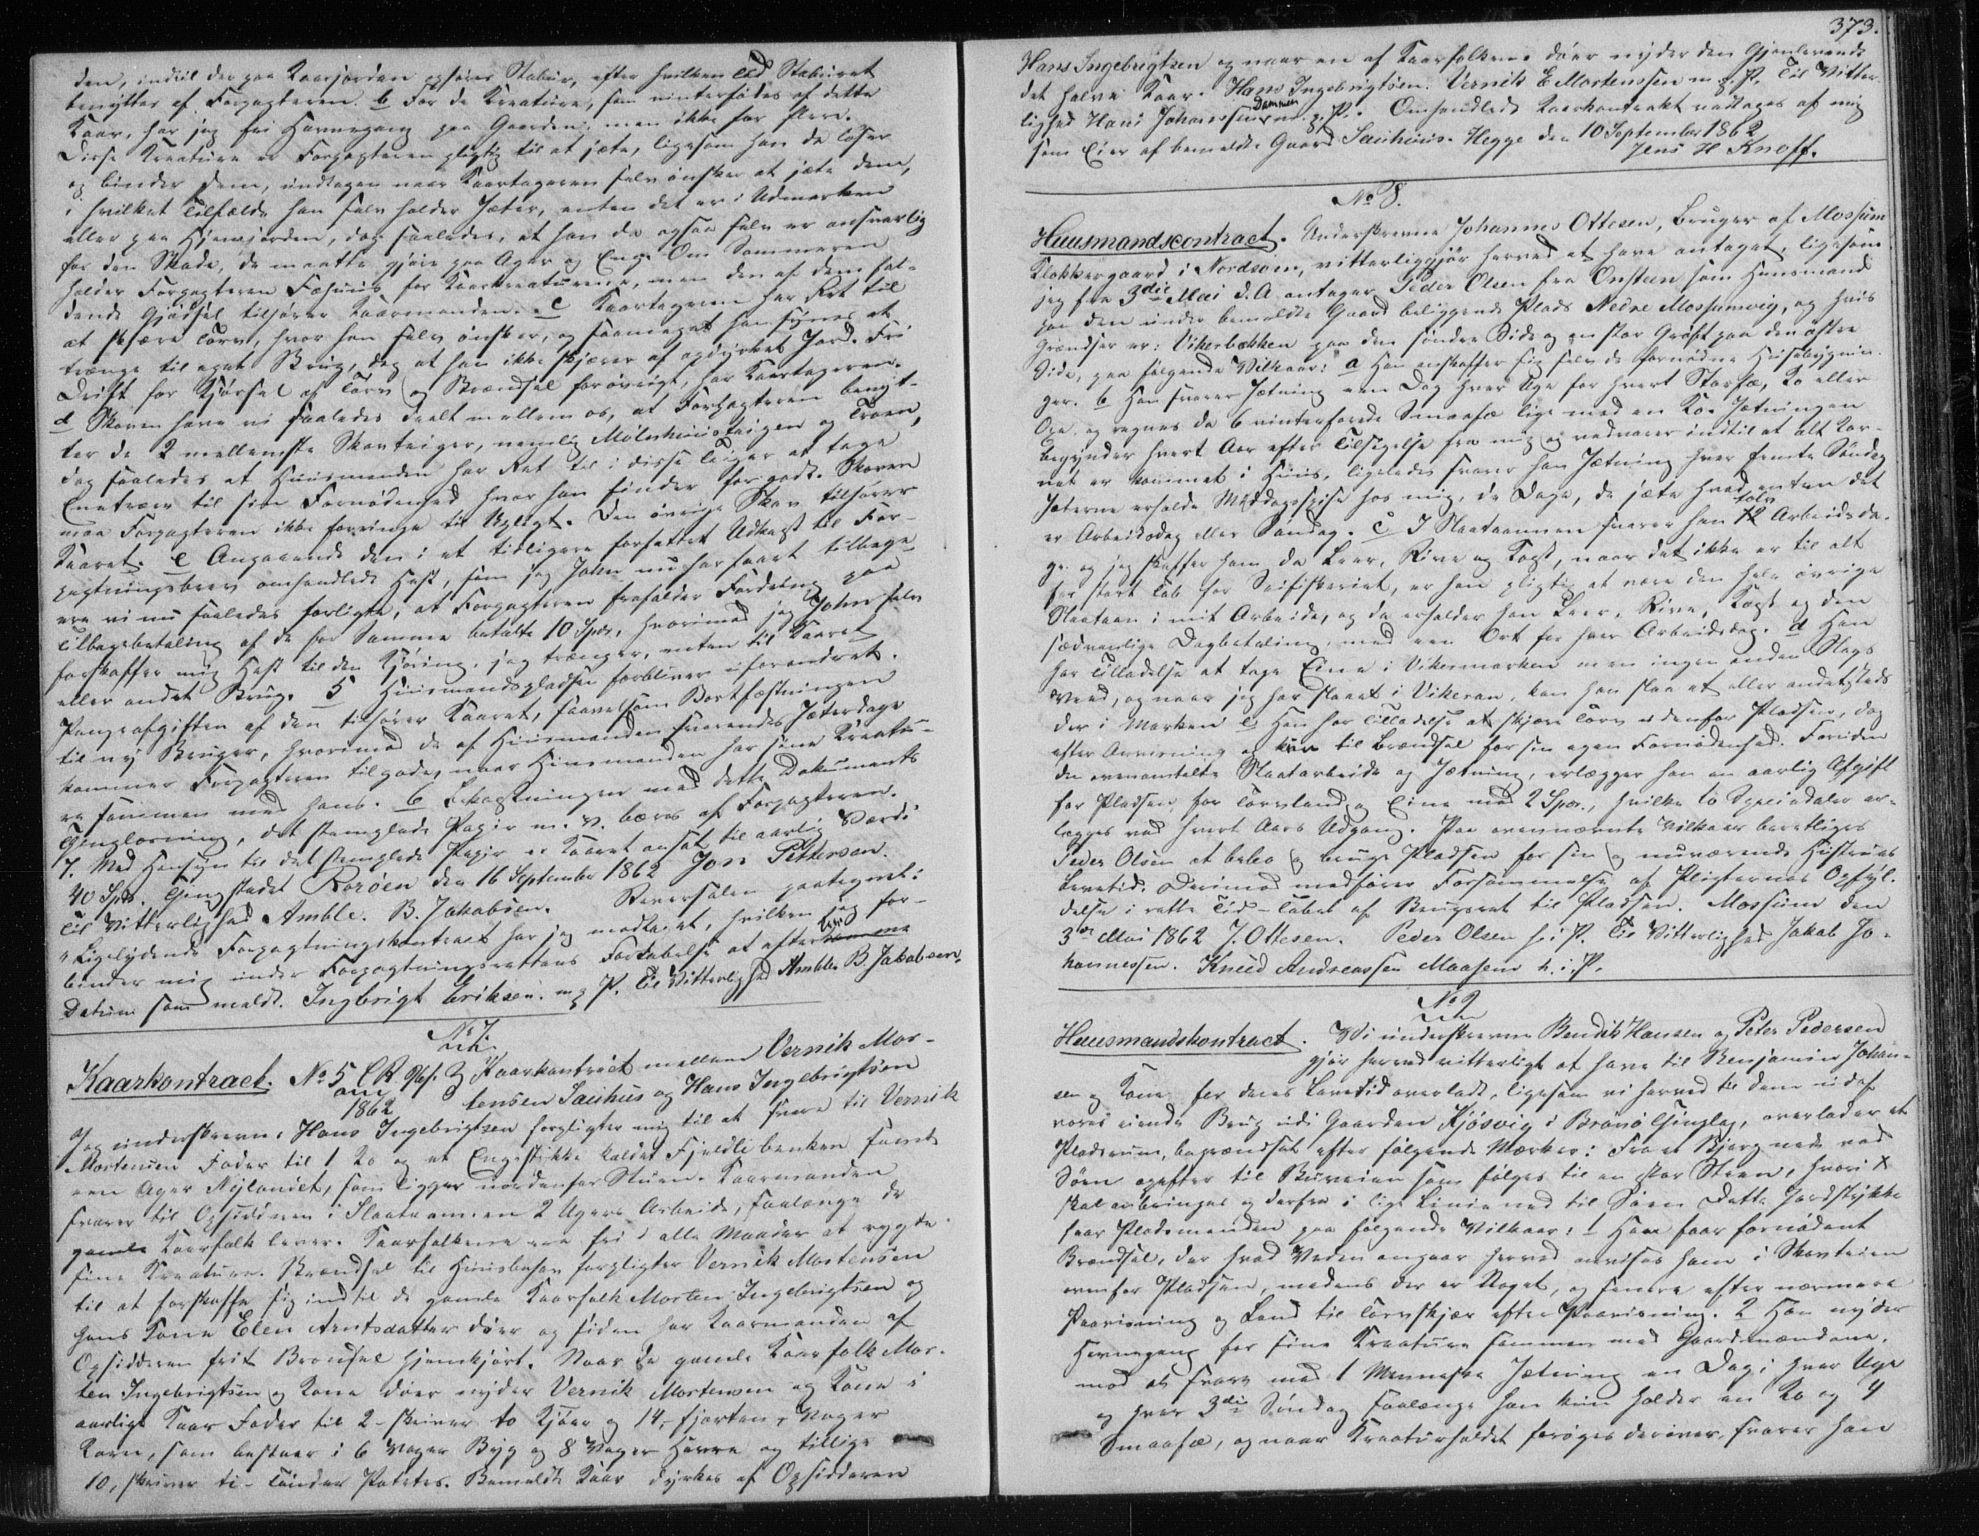 den, indtil der paa Kaarjorden opføres Stabur, efter hvilken Tid Staburet
benyttes af Forpagteren. b For de Kreature, som vinterfødes af dette
Kaar, har jeg fri Havnegang paa Gaarden, men ikke for flere.
Disse Kreature er Forpagteren pligtig til at jæte, ligesom han de løser
og binder dem, undtagen naar Kaartageren selv ønsker at jæte dem,
i hvilket Tilfælde han selv holder Jæter, enten det er i Udmarken
eller paa Hjemjorden, dog saaledes, at han da ogsaa selv er ansvarlig
for den Skade, de maatte gjøre paa Ager og Eng. Om Sommeren
holder Forpagteren Fæhuus for Kaarkreaturene, men den af dem fal-
dende Gjødsel tilhører Kaarmanden. c Kaartageren har Ret til
at skjære Torv, hvor han selv ønsker, og saameget han synes at
trænge til eget Brug, dog at han ikke skjærer af opdyrket Jord. Fri
Drift for Kjørsel af Torv og Brændsel forøvrigt, har Kaartageren.
d Skoven have vi saaledes deelt mellem os, at Forpagteren benyt-
ter de 2 mellemste Skovteiger, nemlig Mølnhuusteigen og Troen,
dog saaledes at Huusmanden har Ret til i disse Teiger at tage
Enetræer til sin Fornødenhed hvor han finder for godt. Skoven
maa Forpagteren ikke forringe til Upligt. Den øvrige Skov tilhører
Kaaret. e Angaaende den i et tidligere forfattet Udkast til For-
pagtningsbrev omhandlede Hest, som jeg John nu har faaet tilbage,
ere vi nu saaledes forligte, at Forpagteren frafalder Fordring paa
Tilbagebetaling af de for Samme betalte 10 Spdr, hvorimod jeg John selv
forskaffer mig Hest til den Kjøring, jeg trænger, enten til Kaaret
eller andet Brug. 5 Huusmandspladsen forbliver uforandret.
Pengeafgiften af den tilhører Kaaret, saavelsom Bortfæstningen
til ny Bruger, hvorimod de af Huusmanden svarendes Jæterdage
kommer Forpagteren tilgode, naar Huusmanden har sine Kreatu-
re sammen med hans. 6 Bekostningen med dette Dokuments
Thinglæsning, det stemplede Papir m. v. bæres af Forpagteren.
7. Med Hensyn til det stemplede Papir er Kaaret ansat til aarlig Værdi
40 Spdr. Thingstedet Rorøen den 16 September 1862 Jon Pettersen.
Til Vitterlighed Amble. B. Jakobsen. Reversalen paategnet:
"Ligelydende Forpagtningskontract har jeg modtaget, hvilken jeg for-
binder mig under Forpagtningsrettens Fortabelse at efterleve
Datum som meldt. Ingbrigt Eriksen. m. p. P. Til Vitterlighed Amble. B. Jakobsen.
No 7.
Kaarkontract. No 5 CR Kaarkontract mellem Vernik Mor-
1862 tensen Sauhus og Hans Ingebrigtsen
Jeg underskrevne Hans Ingebrigtsen forpligter mig til at svare til Vernik
Mortensen Foder til 1 Ko og et Engestikke kaldet Fjeldlibenken samt
een Ager Nylandet, som ligger nordenfor Stuen. Kaarmanden
svarer til Opsidderen i Slaataannen 2 Ugers Arbeide, saalænge de
gamle Kaarfolk lever. Kaarfolkene ere fri i alle Maader at rygte
sine Kreature. Brændsel til Huusbehov forpligter Vernik Mortensen
til at forskaffe sig indtil de gamle Kaarfolk Morten Ingebrigtsen og
hans Kone Elen Arntsdatter døer og siden har Kaarmanden af
Opsidderen frit Brændsel hjemkjørt. Naar de gamle Kaarfolk Mor-
ten Ingebrigtsen og Kone døer nyder Vernik Mortensen og Kone i
aarligt Kaar Foder til 2 - skriver to Kjøer og 14, fjorten, Voger
Korn, som bestaaer i 6 Voger Byg og 8 Voger Havre og tillige
10, skriver ti - Tønder Potetes. Bemeldte Kaar dyrkes af Opsidderen
373.
Hans Ingebrigtsen og naar en af Kaarfolkene døer nyder den Gjenlevende
det halve Kaar. Hans Ingebrigtsen. Vernik E Mortenssen m. p. P. Til Vitter-
lighed Hans Johanssen Dammen m. p. P. Omhandlede Kaarkontrakt vedtages af mig
som Eier af bemeldte Gaard Sauhuus. Hegge den 10 September 1862
Jens H Knoff.
No 8.
Huusmandscontract. Underskrevne Johannes Ottesen, Bruger af Mossum
Klokkergaard i Nordsøm, vitterliggjør herved at have antaget, ligesom
jeg fra 3die Mai d.A. antager Peder Olsen fra Onsteen som Huusmand
paa den under bemeldte Gaard beliggende Plads Nedre Mossumvig, og hvis
Grændser er: Vikerbækken paa den søndre Side og en stor Grøft paa den østre
Side, paa følgende Vilkaar: a Han anskaffer sig selv de fornødne Huusebygnin-
ger. b Han svarer Jætning een Dag hver Uge for hvert Storfæ, Ko eller
Oxe og regnes da 6 vinterforede Smaafæ lige med en Ko. Jætningen
begynder hvert Aar efter Tilsigelse fra mig og vedvarer indtil at alt Kor-
net er kommet i Huus, ligeledes svarer han Jætning hver femte Søndag
Jæterne erholde Middagsspise hos mig, de Dage, de jæte hvad enten det
er Arbeidsdag eller Søndag. c I Slaataannen svarer han 12 tolv Arbeidsda-
ge og jeg skaffer ham da Leer, Rive og Kost, naar det ikke er til alt
for stort Tab for Søfiskeriet, er han pligtig at være den hele øvrige
Slaataan i mit Arbeide, og da erholder han Leer, Rive, Kost og den
sædvanlige Dagbetaling med een Ort for hver Arbeidsdag. d Han
har Tilladelse at tage Eine i Vikermarken men ingen anden Slags
Veed, og naar jeg har slaaet i Vikeren, kan han slaa et eller andetsteds
der i Marken e Han har Tilladelse at skjære Torv udenfor Pladsen, dog
efter Anvisning og kun til Brændsel for sin egen Fornødenhed. Foruden
den ovenomtalte Slaatarbeide og Jætning, erlægger han en aarlig Afgift
for Pladsen, for Torvland og Eine med 2 Spdr., hvilke to Speciedaler er-
lægges ved hvert Aars Udgang. Paa ovennævnte Vilkaar berettiges
Peder Olsen at beboe og bruge Pladsen for sin og nuværende Hustrues
Levetid. Derimod medfører Forsømmelse af Pligternes Opfyl-
delse i rette Tid - Tabet af Brugsret til Pladsen. Mossum den
3die Mai 1862 J. Ottesen. Peder Olsen h. i. P. Til Vitterlighed Jakob Jo-
hannessen. Knud Andreassen Maasem h. i. P.
No 9
Huusmandskontract. Vi underskrevne Bendik Hansen og Peter Pedersen
gjør herved vitterligt at have til Benjamin Johan-
sen og Kone for deres Levetid overladt, ligesom vi herved til dem udaf
vores eiende Brug udi Gaarden Kjøsvig i Brønø Thinglag, overlader et
Pladserum, begrændset efter følgende Mærker: Fra et Bjerg nede ved
Søen opefter til Buveien som følges til en stor Steen, hvori X
skal anbringes og derfra i lige Linie ned til Søen Dette Jordstykke
faar Pladsmanden paa følgende Vilkaar: 1 Han faar fornødent
Brændsel, der hvad Veden angaar herved anvises ham i Skovteien
ovenfor Pladsen, medens der er Noget, og senere efter nærmere
Paavisning og Land til Torvskjær efter Paavisning. 2 Han nyder
Havnegang for sine Kreature sammen med Gaardmændene,
mod at svare med 1 Menneske Jætning en Dag i hver Uge
og hver 3die Søndag saalænge han kun holder en Ko og 4
Smaafæ, og naar Kreaturholdet forøges derover, svarer han